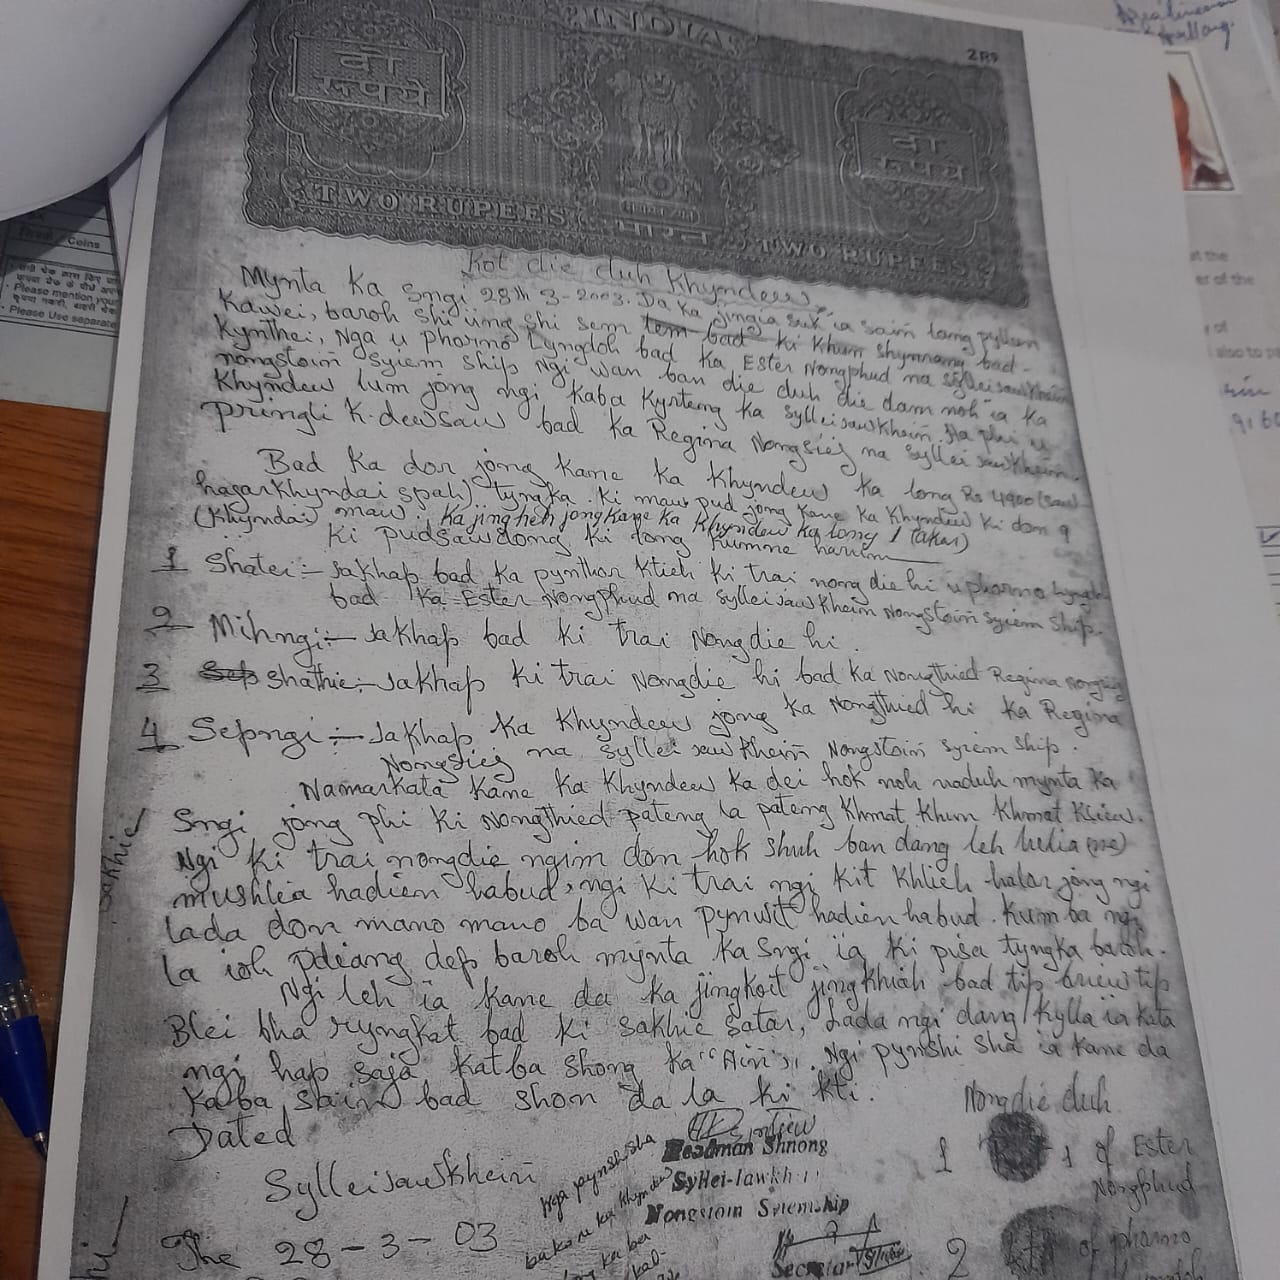 INDIA
2RS
दो
रूपये
दो
रूपये
TWO RUPEES
भारत
TWO RUPEES
Kot die duh Khyndew
Mynta Ka Sngi 28th 3-2003. Da Ka jingia suk ia saiñ lang pyllun
Kawei, baroh shi iing shi sem tem bad ki Khun shynrang bad
Kynthei, Nga u Pharmo Lyngdoh bad Ka Ester Nongphud na Sylleisawkhein
nongstoin Syiem Ship Ngi wan ban die duh die dam noh ia ka
Khyndew lum jong ngi kaba Kynteng ka Sylleisawkhein. Ha phi u
pringli K.dewsaw bad Ka Regina Nongsiej na Syllei sawkhein.
Bad Ka dor jong Kane Ka Khyndew Ka long Rs 4900 (saw
hajar Khyndai spah) tyngka. Ki maw pud jong Kane Ka Khyndew Ki don 9
(Khyndai) maw. Ka jingheh jong Kane Ka Khyndew Ka long 1 (akar)
Ki pudsawdong Ki long Kumne harum
1 Shatei:- Jakhap bad Ka pynthor Ktieh Ki trai nong die hi u pharmo Lyngdoh
bad Ka Ester Nongphud na Sylleisawkhein Nongstoin Syiem Ship.
2 Mihngi:- Jakhap bad Ki trai Nongdie hi.
3 Sep Shathie:- Jakhap Ki trai Nongdie hi bad Ka Nongthied Regina Nongsiej
4 Sepngi:- Jakhap Ka Khyndew jong Ka Nongthied hi Ka Regina
Nongsiej na Syllei sawkhein Nongstoin Syiem Ship.
Namarkata Kane Ka Khyndew Ka dei hok noh naduh mynta Ka
Sngi jong phi Ki Nongthied pateng la pateng Khmat Khun Khmat Ksiew.
Ngi Ki trai nongdie ngim don hok shuh ban dang leh
mushlia hadien habud, ngi Ki trai ngi Kit Khlieh halor jong ngi
lada don mano mano ba wan pynwit hadien habud. Kum ba ngi
la ioh pdiang dep baroh mynta Ka Sngi ia Ki pisa tyngka baroh.
Ngi leh ia Kane da Ka jingkoit jingkhiah bad tip briew tip
Blei bha ryngkat bad Ki Sakhie Satar, Lada ngi dang Kylla ia Kata
ngi hap saja Katba shong Ka "Ain". Ngi pynshisha ia Kane da
Kaba sain bad shon da la Ki Kti.
Sakhie
Nongdie duh
Dated
Sylleisawkhein
The 28-3-03
Headman Shnong
Syllei-Iawkh
Nongstoin Syiemship
Nga pynshisha
ba kane ka khyndew
ka ba
Secretary
1 of Ester
Nongphud
2 of pharmo
Coins